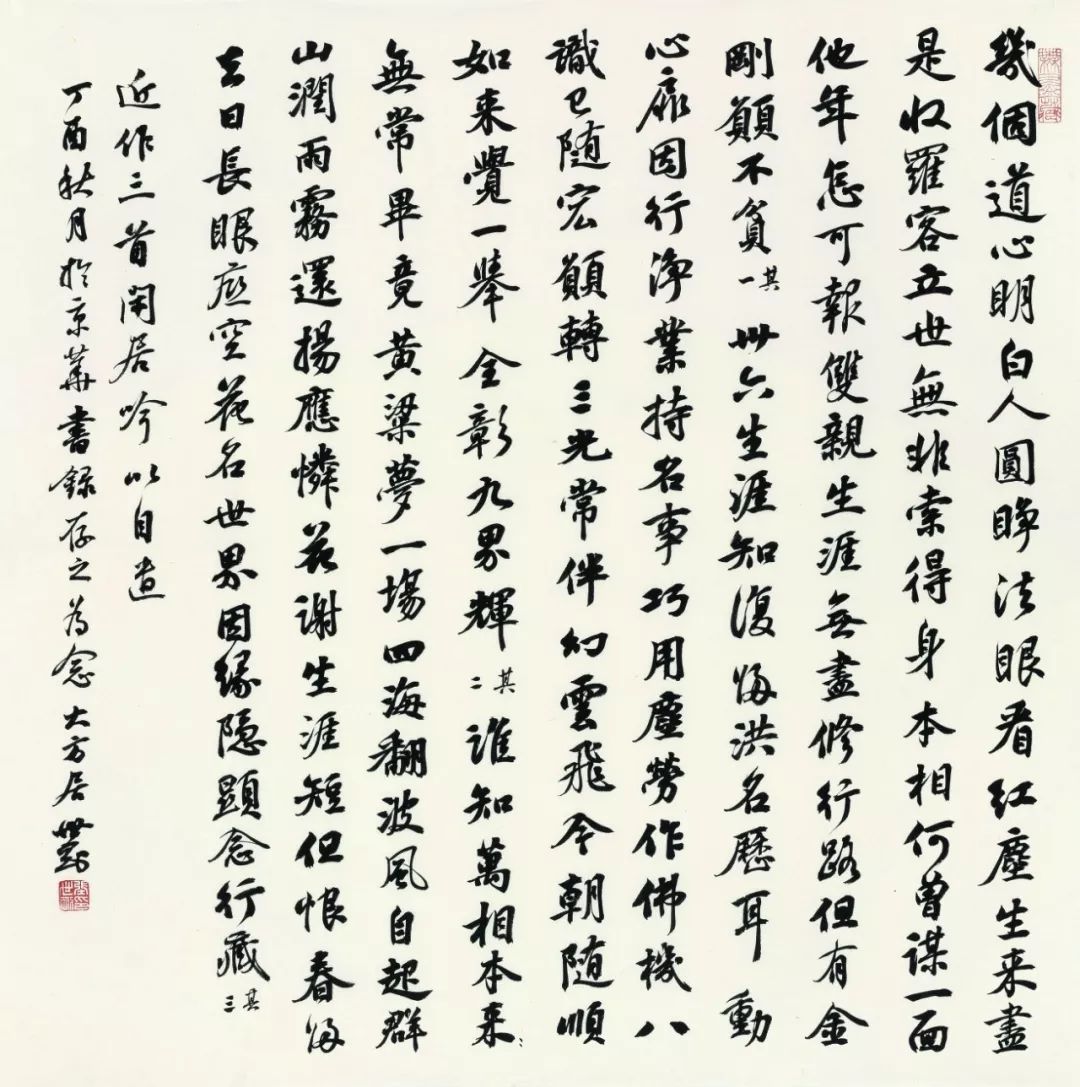 幾個道心明白人圓睜法眼看紅塵生来盡
是收羅客立世無非索得身本相何曾謀一面
他年怎可報雙親生涯無盡修行路但有金
剛願不貧其一卅六生涯知復歸洪名歷耳動
心扉因行淨業持名事巧用塵勞作佛機八
識已随宏願轉三光常伴幻雲飛今朝随順
如来覺一舉全彰九界輝其二誰知萬相本来
無常畢竟黄粱夢一場四海翻波風自起群
山潤雨霧還揚應憐花謝生涯短但恨春歸
去日長眼底空花名世界因緣隐顯念行藏其三
近作三首閑居吟以自遣
丁酉秋月於京華書録存之為念大方居